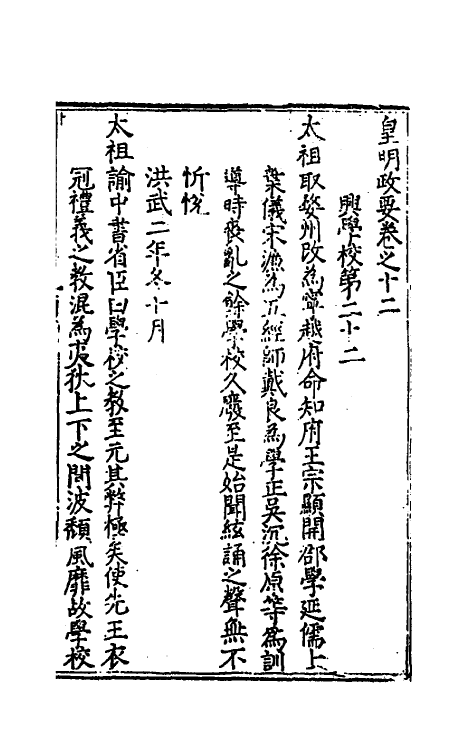 皇明政要卷之十二
興學校第二十二
太祖取婺州改為寧越府命知府王宗顯開郡學延儒士
葉儀宋濂為五經師戴良為學正吳沉徐原等為訓
導時喪亂之餘學校久廢至是始聞絃誦之聲無不
忻悅
洪武二年冬十月
太祖諭中書省臣曰學校之教至元其弊極矣使先王衣
冠禮義之教混為夷狄上下之間波頹風靡故學校